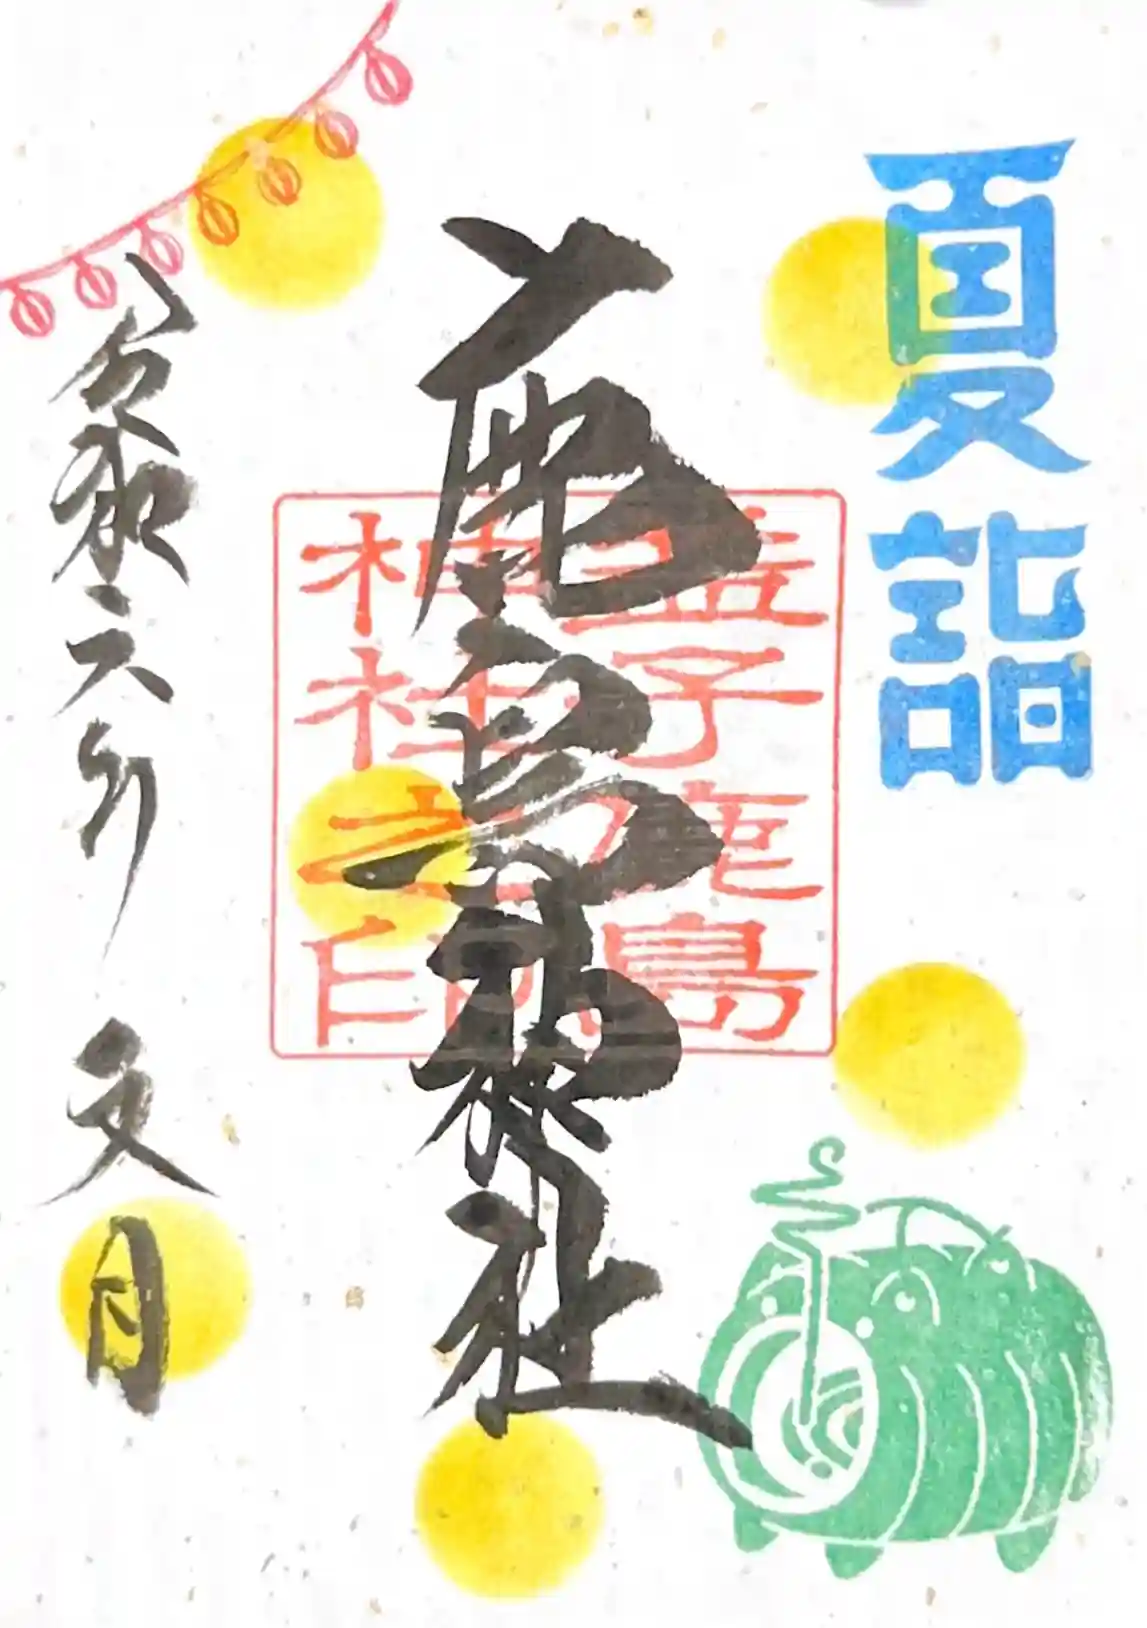 夏詣
鹿島神社
益子鹿島
神社之印
令和六年 文月